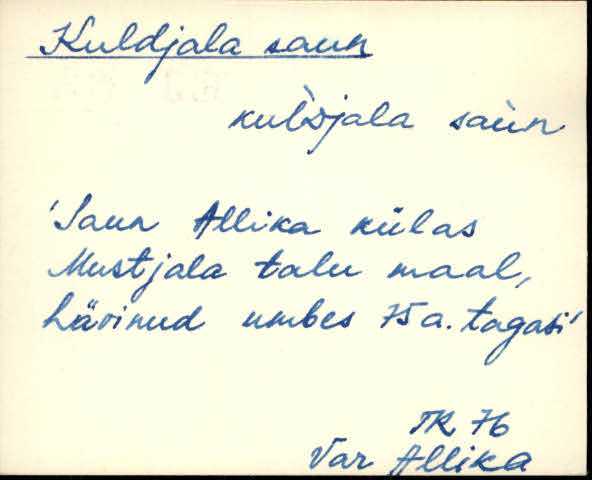 Kuldjala saun
kul̀djala saùn
'Saun Allika külas
Mustjala talu maal,
hävinud umbes 75 a. tagasi'
TR 76
Var Allika